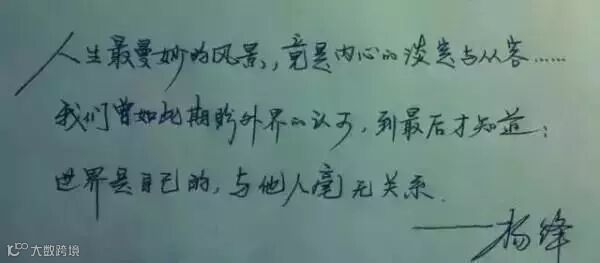 人生最曼妙的风景，竟是内心的淡定与从容……
我们曾如此期盼外界的认可，到最后才知道：
世界是自己的，与他人毫无关系.
——杨绛
大数跨境